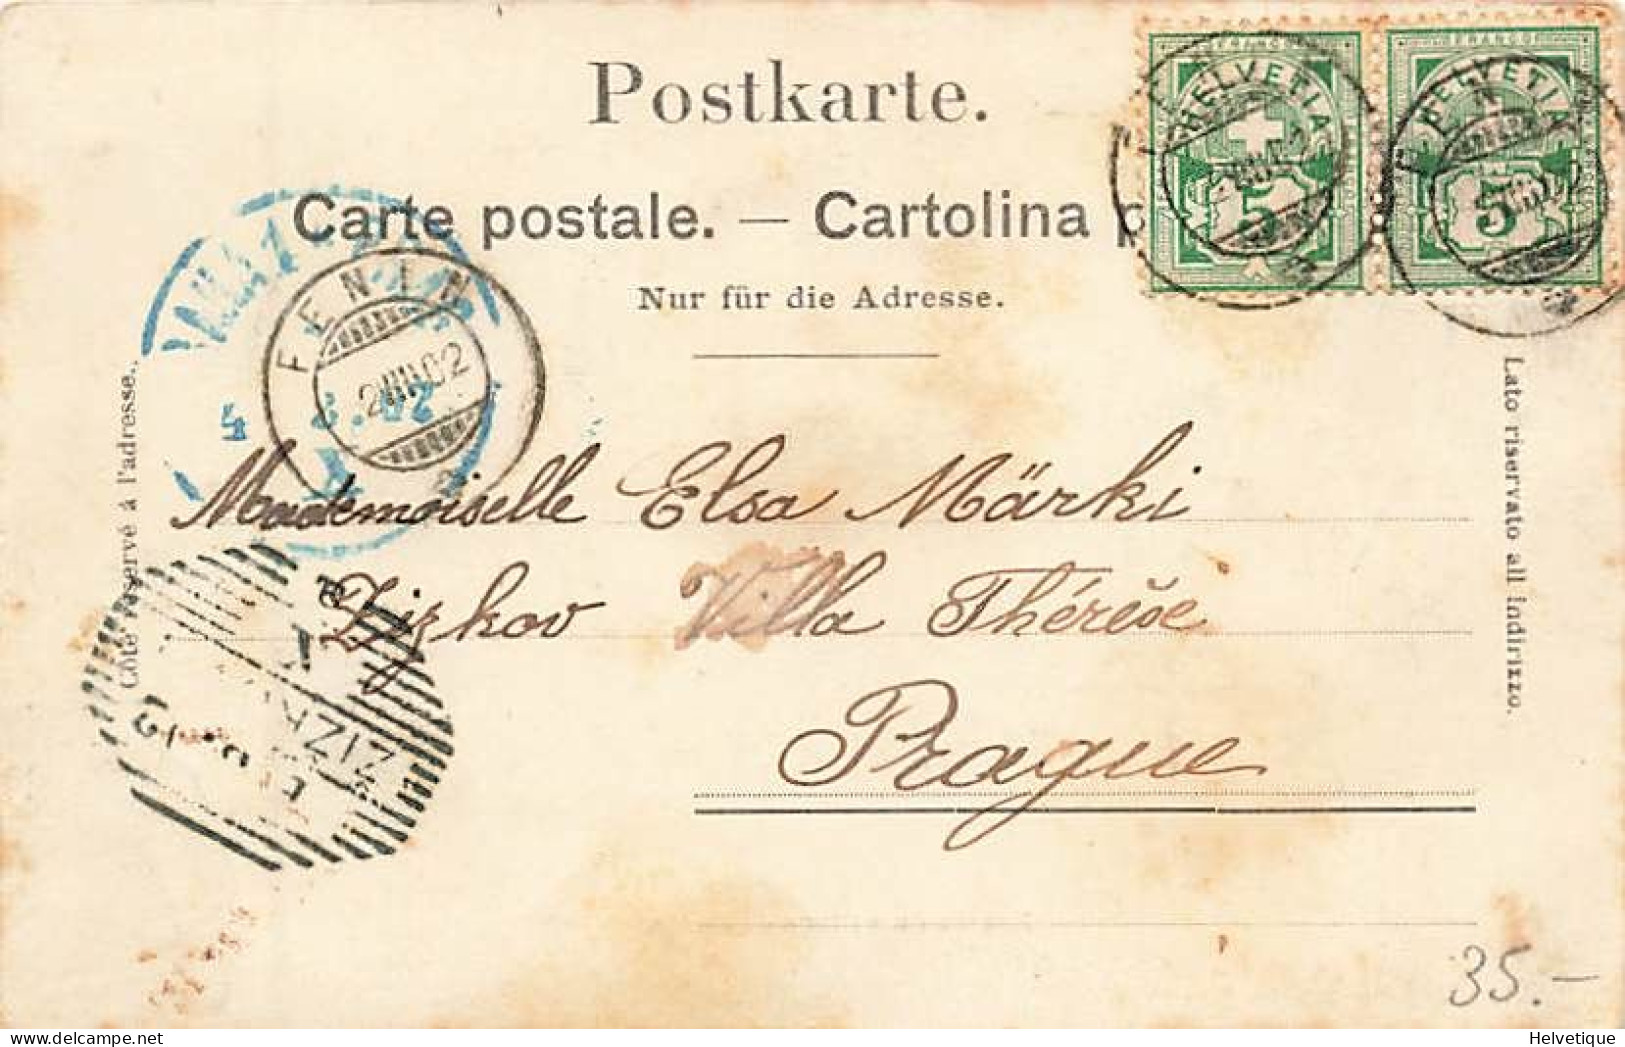 Postkarte.
Carte postale. — Cartolina p
Nur für die Adresse.
HELVETIA
5
HELVETIA
5
FENIN
2 VIII 02
4 8. 02
Côté réservé à l'adresse.
Lato riservato all indirizzo.
Mademoiselle Elsa Märki
Zizkov Villa Thérèse
Prague
35.-
Helvetique